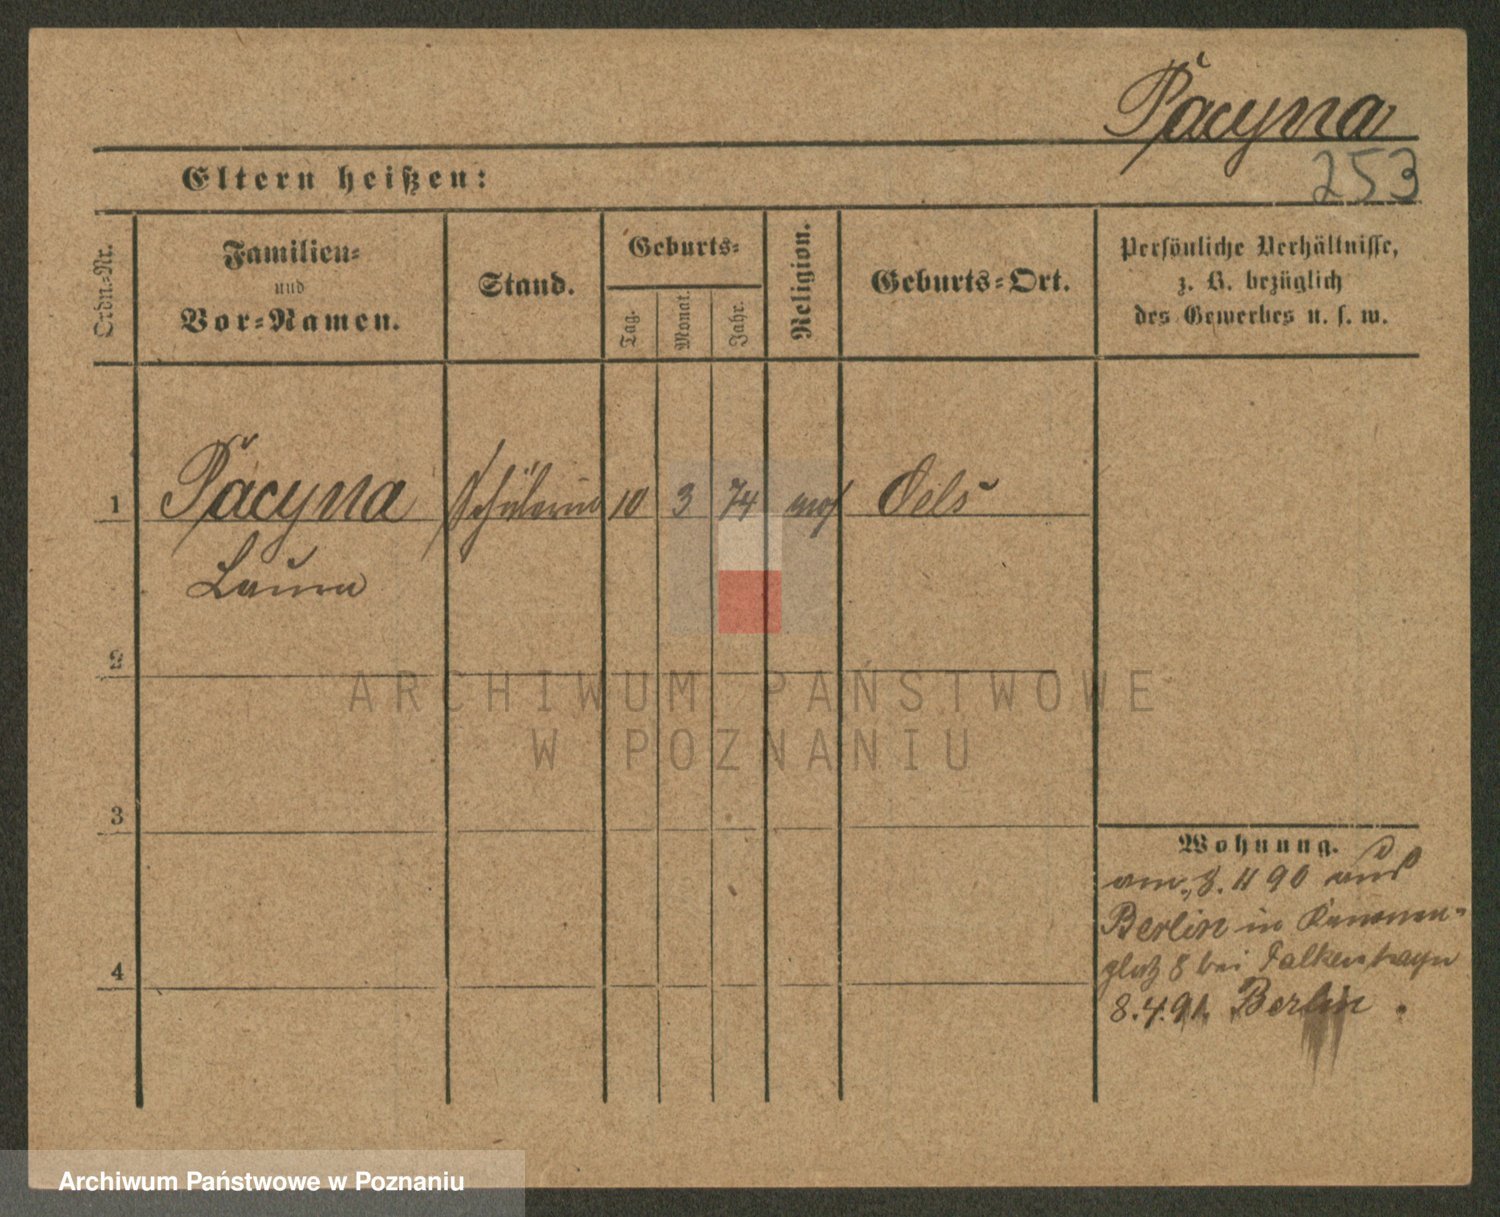 Pacyna
253
Eltern heißen:
Ordn.-Nr.
Familien-
und
Vor-Namen.
Stand.
Geburts-
Tag.
Monat.
Jahr.
Religion.
Geburts-Ort.
Persönliche Verhältnisse,
z. B. bezüglich
des Gewerbes u. s. w.
1 Pacyna Schülerin 10 3 74 Oels
Laura
2
ARCHIWUM PAŃSTWOWE
W POZNANIU
3
Wohnung.
am 90 aus
Berlin in
platz 8 bei Falkenhayn
4
8.4.91. Berlin.
Archiwum Państwowe w Poznaniu